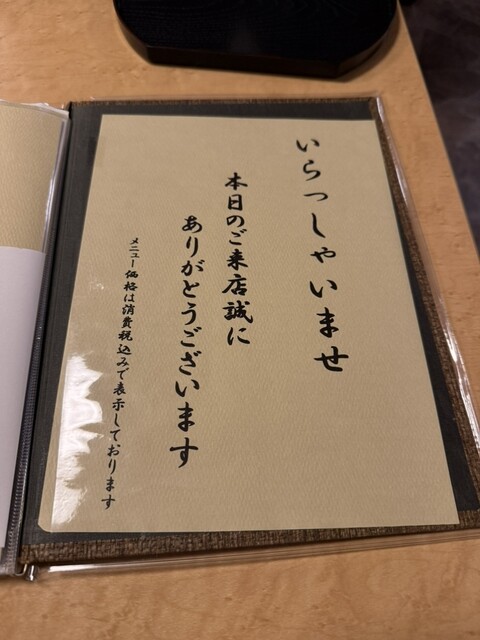 いらっしゃいませ
本日のご来店誠に
ありがとうございます
メニュー価格は消費税込みで表示しております